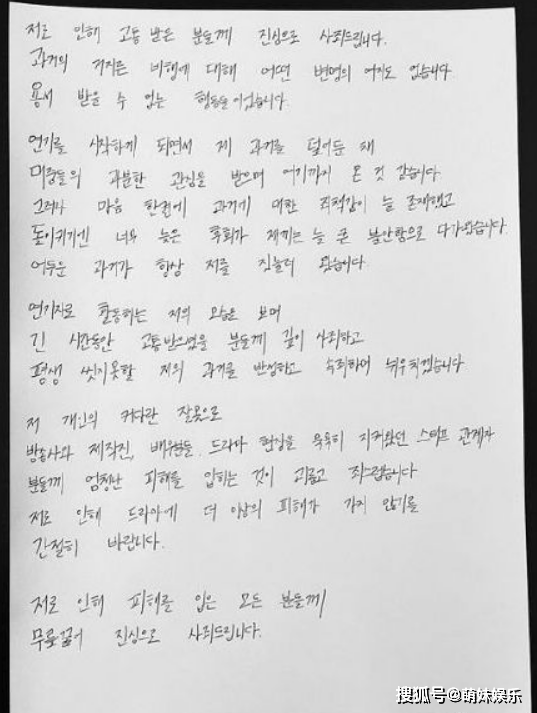 저로 인해 고통 받은 분들께 진심으로 사죄드립니다.
과거의 저지른 비행에 대해 어떤 변명의 여지도 없습니다
용서 받을 수 없는 행동들이었습니다.
연기를 시작하게 되면서 제 과거를 덮어둔 채
대중들의 과분한 관심을 받으며 여기까지 온 것 같습니다.
그러나 마음 한켠에 과거에 대한 죄책감이 늘 존재했고
돌이키기엔 너무 늦은 후회가 제게는 늘 큰 불안함으로 다가왔습니다.
어두운 과거가 항상 저를 짓눌러 왔습니다.
연기자로 활동하는 저의 모습을 보며
긴 시간동안 고통받으셨을 분들께 깊이 사죄하고
평생 씻지못할 저의 과거를 반성하고 속죄하며 뉘우치겠습니다
저 개인의 커다란 잘못으로
방송사와 제작진, 배우분들, 드라마 현장을 묵묵히 지켜왔던 스태프 관계자
분들께 엄청난 피해를 입히는 것이 괴롭고 죄스럽습니다
저로 인해 드라마에 더 이상의 피해가 가지 않기를
간절히 바랍니다.
저로 인해 피해를 입은 모든 분들께
무릎꿇어 진심으로 사죄드립니다.
搜狐号@萌妹娱乐